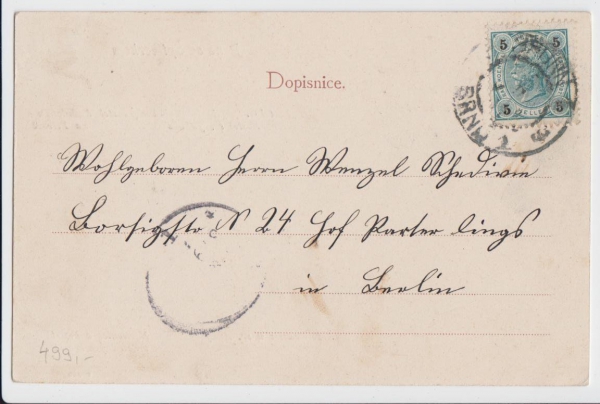 Dopisnice.
5 5
5 5
BRÜNN
Wohlgeboren Herrn Wenzel Schediwie
Borsigstr N 24 Hof Parter lings
in Berlin
499,-